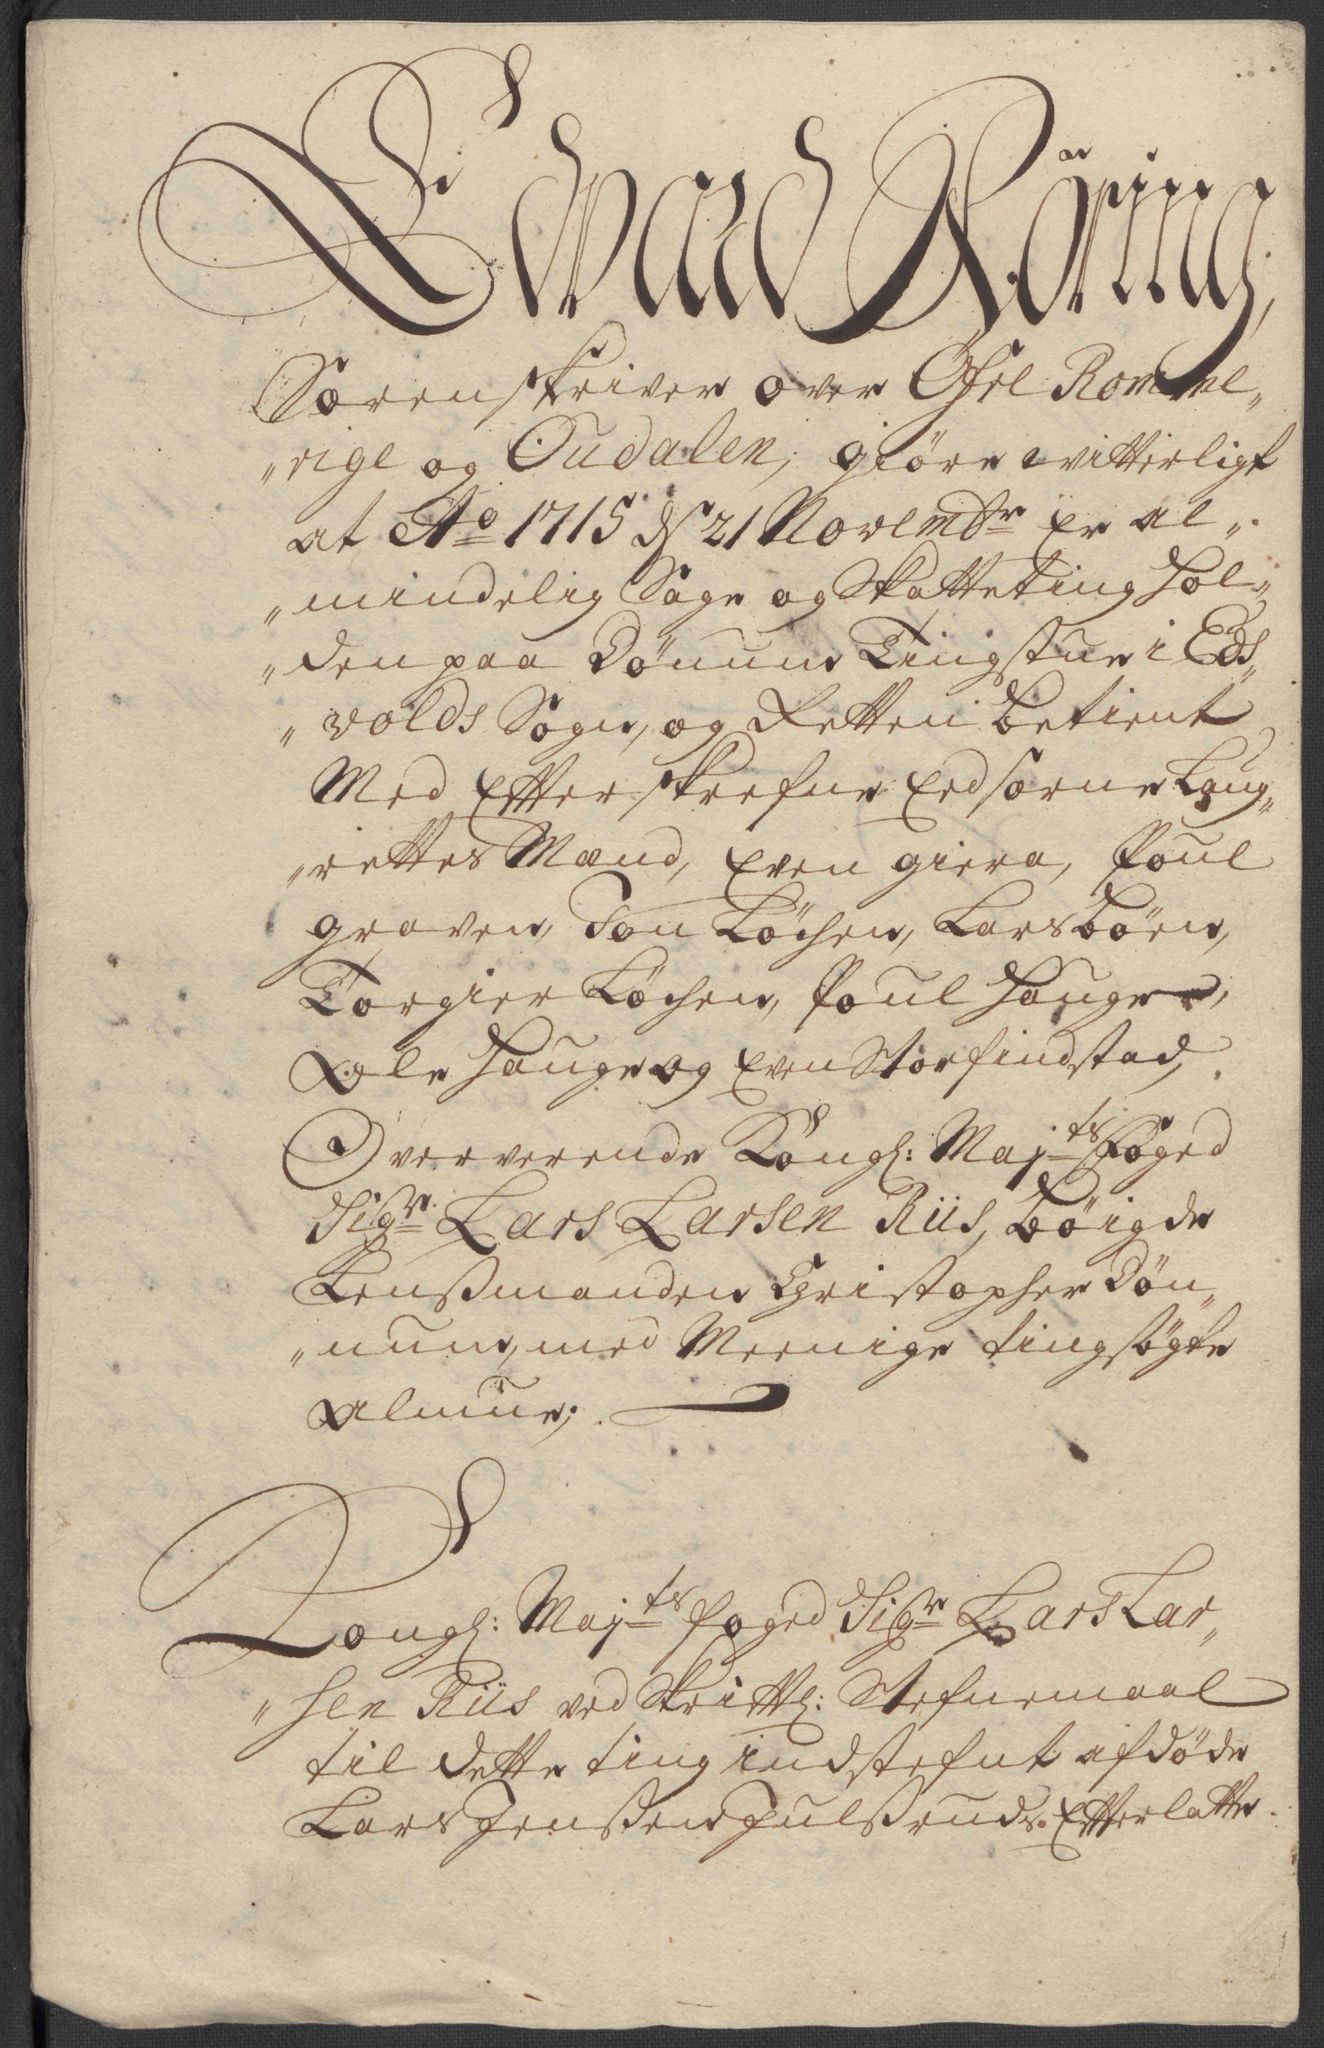 Edvard Röring,
Sorenskriver over Öfre Romme„
„rige og Oudalen, giöre vitterligt
at Ao 1715 ds 21 Novembr er al„
„mindelig Sage og Skatteting hol„
„den paa Dönnum Tingstue i Eds„
„volds Sogn, og Retten betient
Med Efterskrefne Eedsorne Laug„
„rettes Mænd, Even giera, Poul
graven, Jon Löchen, Lars börn,
Torgier Löchen, Poul Hauge,
Ole Hauge og Even Storfindstad,
Oververende Kongl: Majts Foged
Sigr. Lars Larsen Riis, böigde
Lensßmanden Christopher Dön„
„num, med Meenige tingsögte
Almue;
Kongl: Majts foged Sigr Lars Lar„
„sen Riis ved Skriftl: Stefnemaal
til dette ting indstefnt afdöde
Lars Jenßen Julßruds Efterlatte